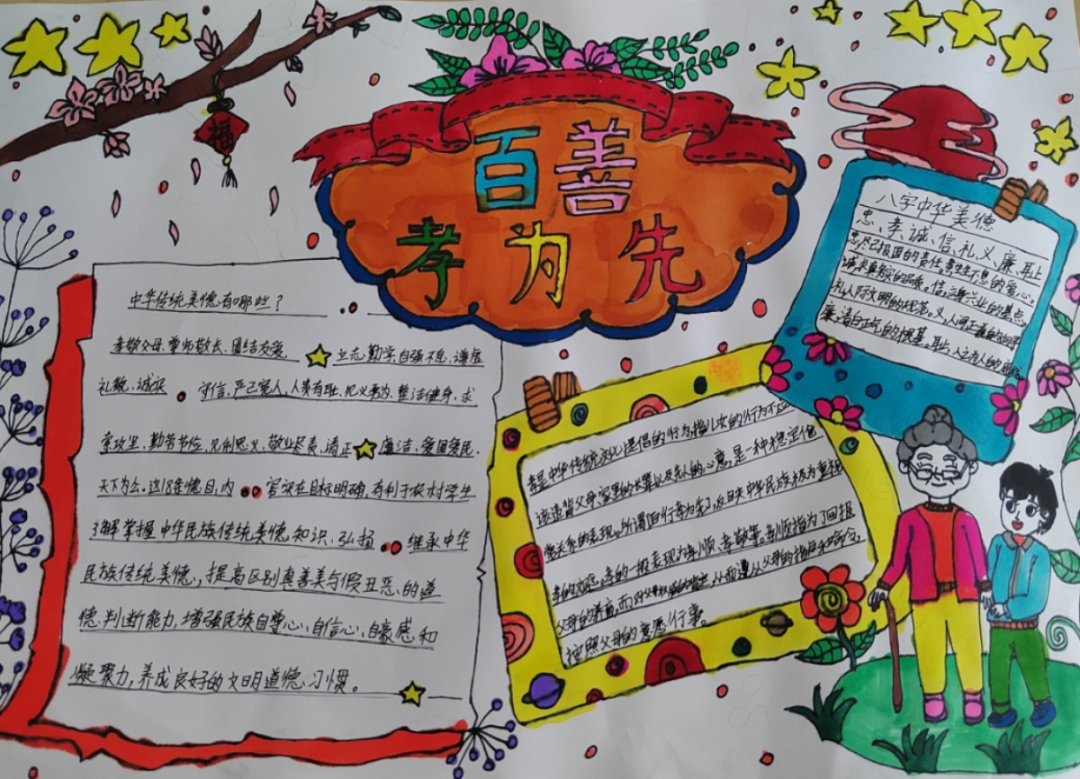 福
百善
孝为先
中华传统美德有哪些?
孝敬父母、尊师敬长、团结友爱、立志勤学、自强不息、谦虚
礼貌、诚实守信、严己宽人、人贵有耻、见义勇为、整洁健身、求
索攻坚、勤劳节俭、见利思义、敬业尽责、清正廉洁、爱国爱民、
天下为公。这18条德目,内容实在目标明确,有利于农村学生
了解掌握中华民族传统美德知识、弘扬继承中华
民族传统美德,提高区别真善美与假丑恶的道
德判断能力,增强民族自尊心、自信心、自豪感和
凝聚力,养成良好的文明道德习惯。
孝是中华传统文化提倡的行为,指儿女的行为不应
该违背父母、家里的长辈以及先人的心意,是一种稳定伦
常关系的表现。所谓百行孝为先,反映中华民族极为重视
孝的观念。孝的一般表现为孝顺、孝敬等。孝顺指为了回报
父母的养育,而对父母
按照父母的意愿行事。
八字中华美德
忠、孝、诚、信、礼、义、廉、耻
忠,尽己报国的责任,孝,生生不息的爱心。
诚,求真务实的品质。信,立身兴业的基点。
礼,人际文明的规范。义,人间正道的
廉,清白正气的根基。耻,人之为人的